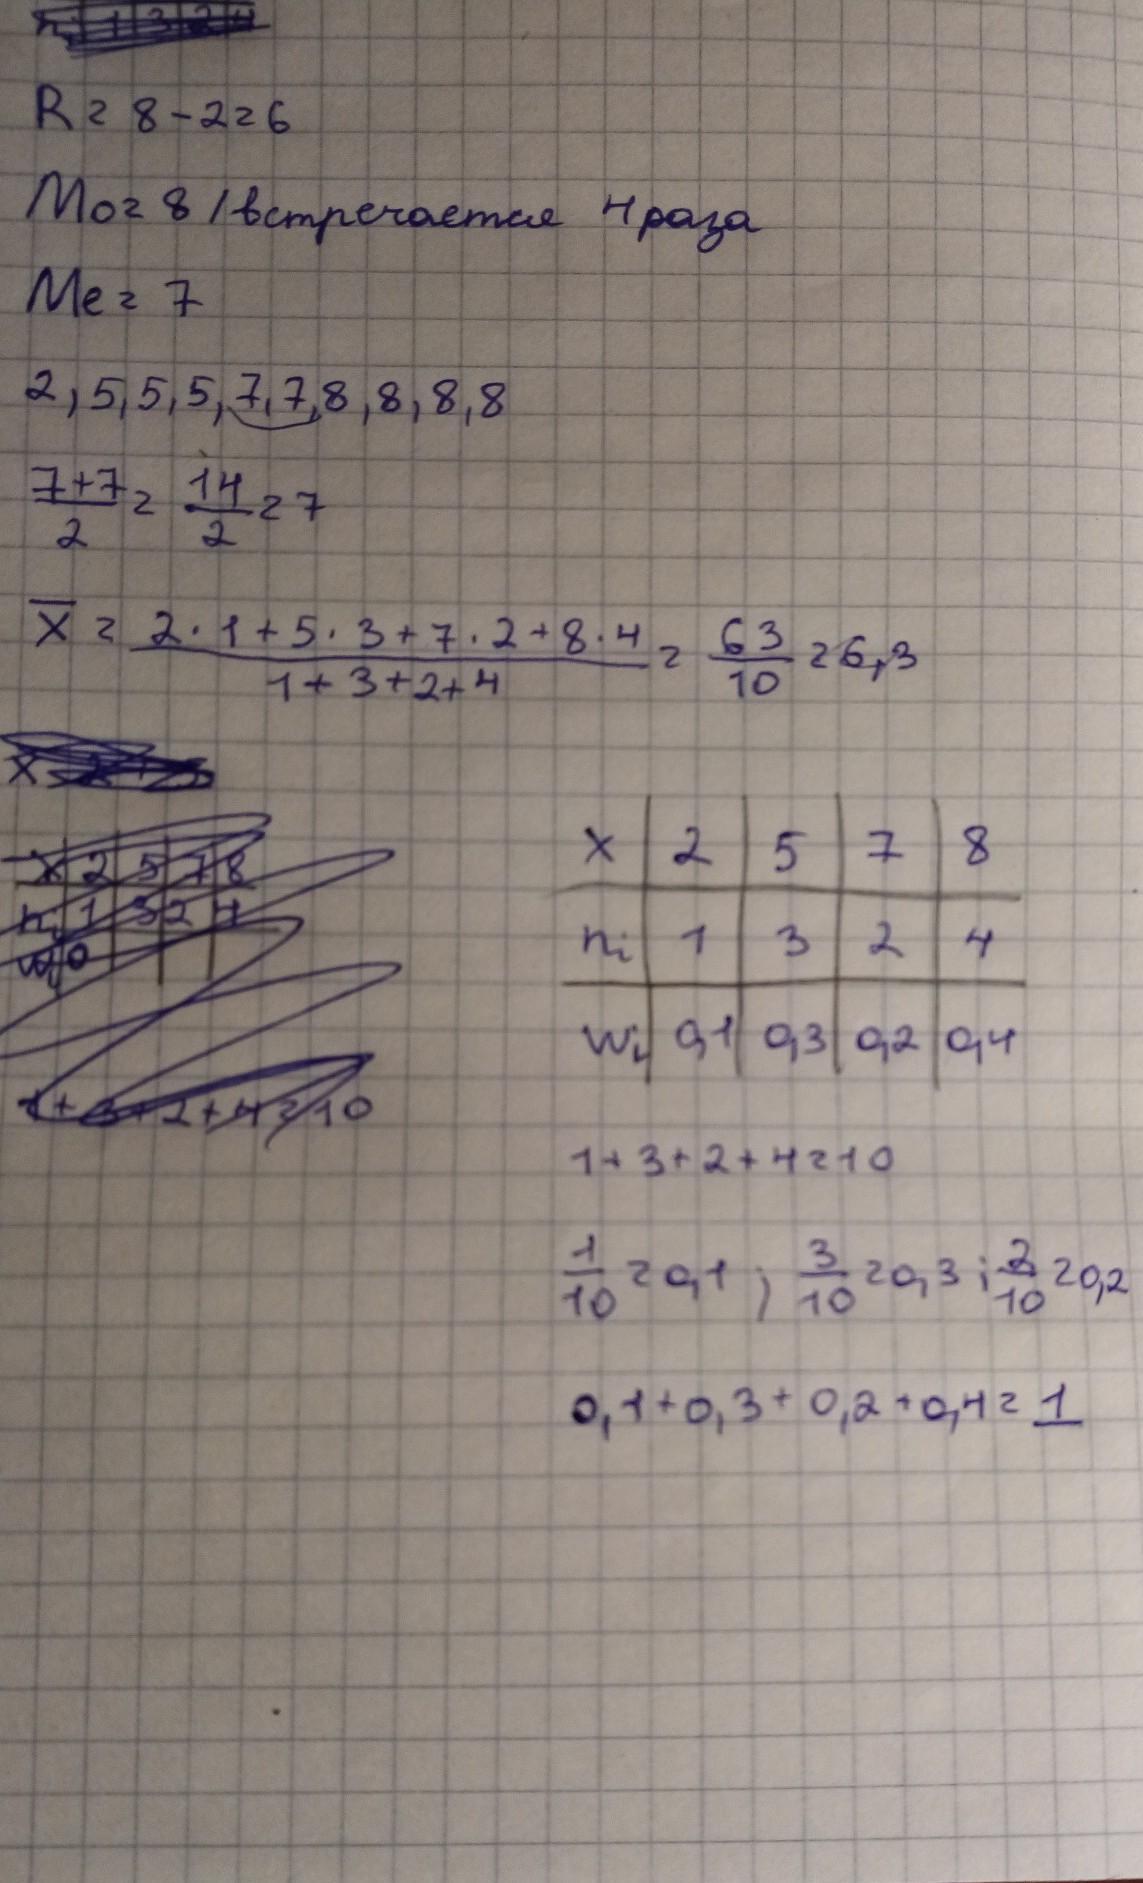 n_i 1 3 2 4
R = 8 - 2 = 6
Mo = 8 / встречается 4 раза
Me = 7
2, 5, 5, 5, 7, 7, 8, 8, 8, 8
7+7/2 = 14/2 = 7
x̄ = 2·1+5·3+7·2+8·4/1+3+2+4 = 63/10 = 6,3
x
x 2 5 7 8
n_i 1 3 2 4
w_i 0
1+3+2+4=10
x 2 5 7 8
n_i 1 3 2 4
w_i 0,1 0,3 0,2 0,4
1+3+2+4=10
1/10 = 0,1 ; 3/10 = 0,3 ; 2/10 = 0,2
0,1+0,3+0,2+0,4 = 1